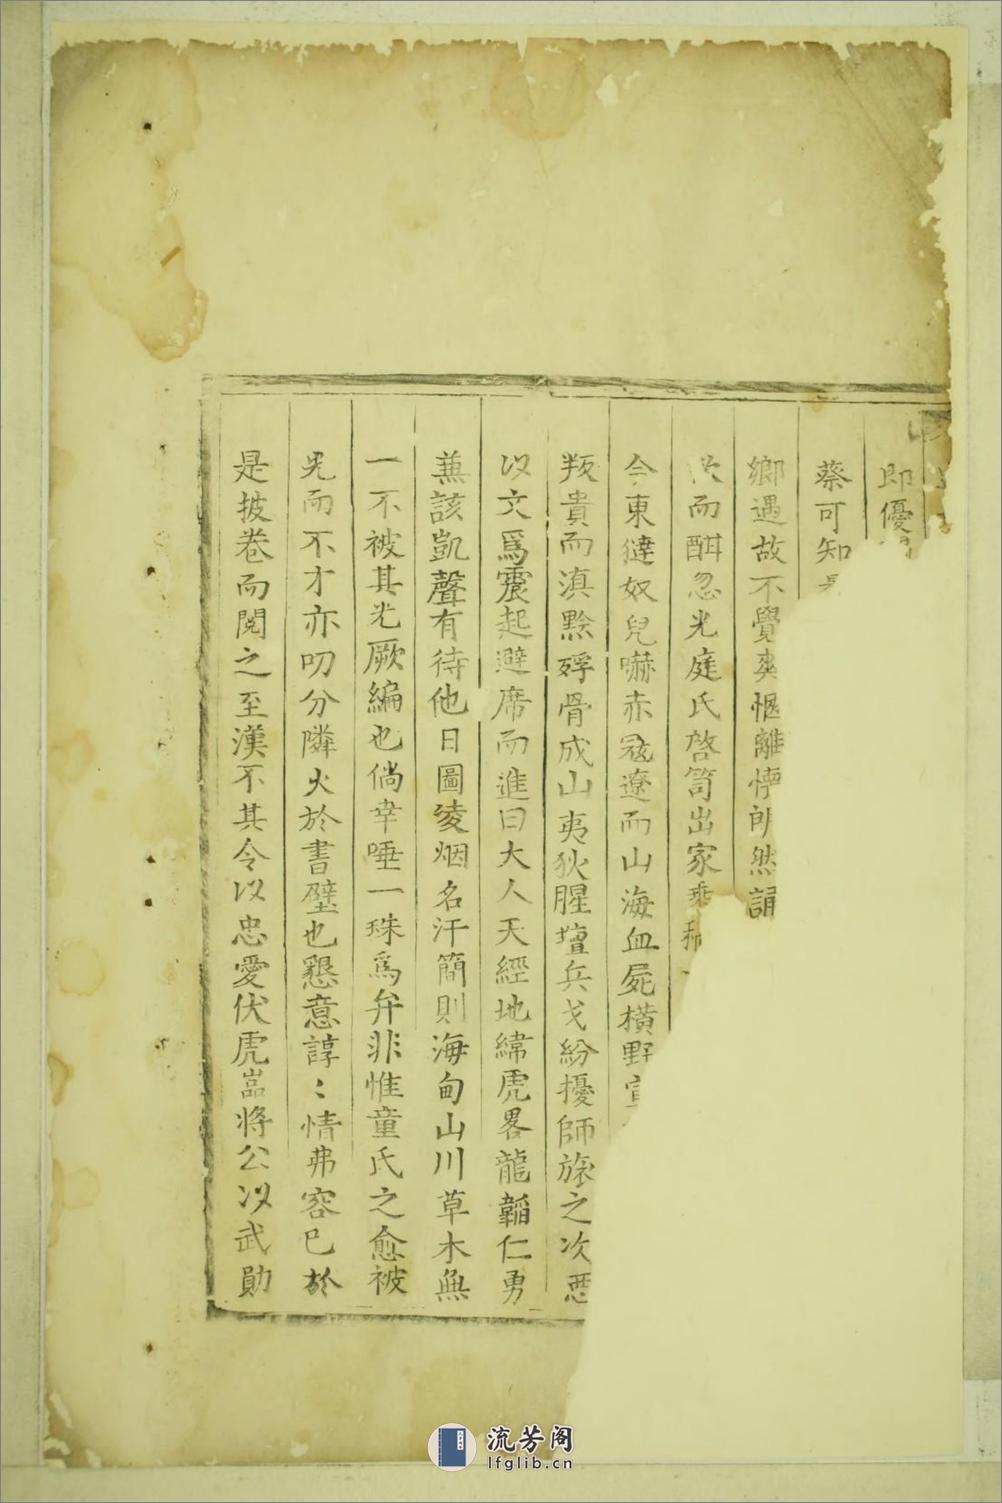 即優
蔡可知
鄉遇故不覺爽愜離悰朗然誦
次而酣忽光庭氏啓笥出家乘
今東㺚奴兒嚇赤冦遼而山海血屍橫野
叛貴而滇黔殍骨成山夷狄腥壇兵戈紛擾師旅之次
以文爲震起避席而進曰大人天經地緯虎畧龍韜仁勇
蕪該凱聲有待他日圖凌烟名汗簡則海甸山川草木無
一不被其光厥編也倘幸唾一珠爲弁非惟童氏之愈被
光而不才亦叨分隣火於書壁也懇意諄〻情弗容已於
是披卷而閱之至漢不其令以忠愛伏虎嵓將公以武勛
流芳阁
lfglib.cn